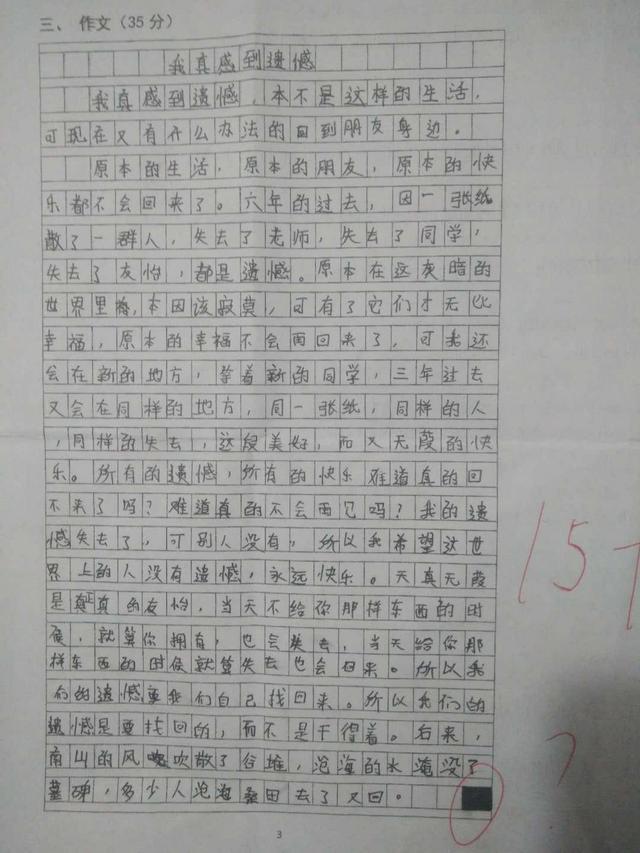 三、作文（35分）
我真感到遗憾
我真感到遗憾，本不是这样的生活，
可现在又有什么办法的回到朋友身边。
原本的生活，原本的朋友，原本的快
乐都不会回来了。六年的过去，因一张纸
散了一群人，失去了老师，失去了同学，
失去了友怡，都是遗憾。原本在这灰暗的
世界里，本因该寂莫，可有了它们才无比
幸福，原本的幸福不会再回来了，可我还
会在新的地方，等着新的同学，三年过去
又会在同样的地方，同一张纸，同样的人
，同样的失去，这段美好，而又无葭的快
乐。所有的遗憾，所有的快乐难道真的回
不来了吗？难道真的不会再见吗？我的遗
憾失去了，可别人没有，所以我希望这世
界上的人没有遗憾，永远快乐。天真无葭
是真正真的友怡，当天不给你那样东西的时
候，就算你拥有，也会失去，当天给你那
样东西的时候就算失去也会回来。所以我
们的遗憾要我们自己找回来。所以我们的
遗憾是要找回的，而不是干得着。右来，
南山的风吹散了谷堆，沧海的水淹没了
墓碑，多少人沧海桑田去了又回。
3
15